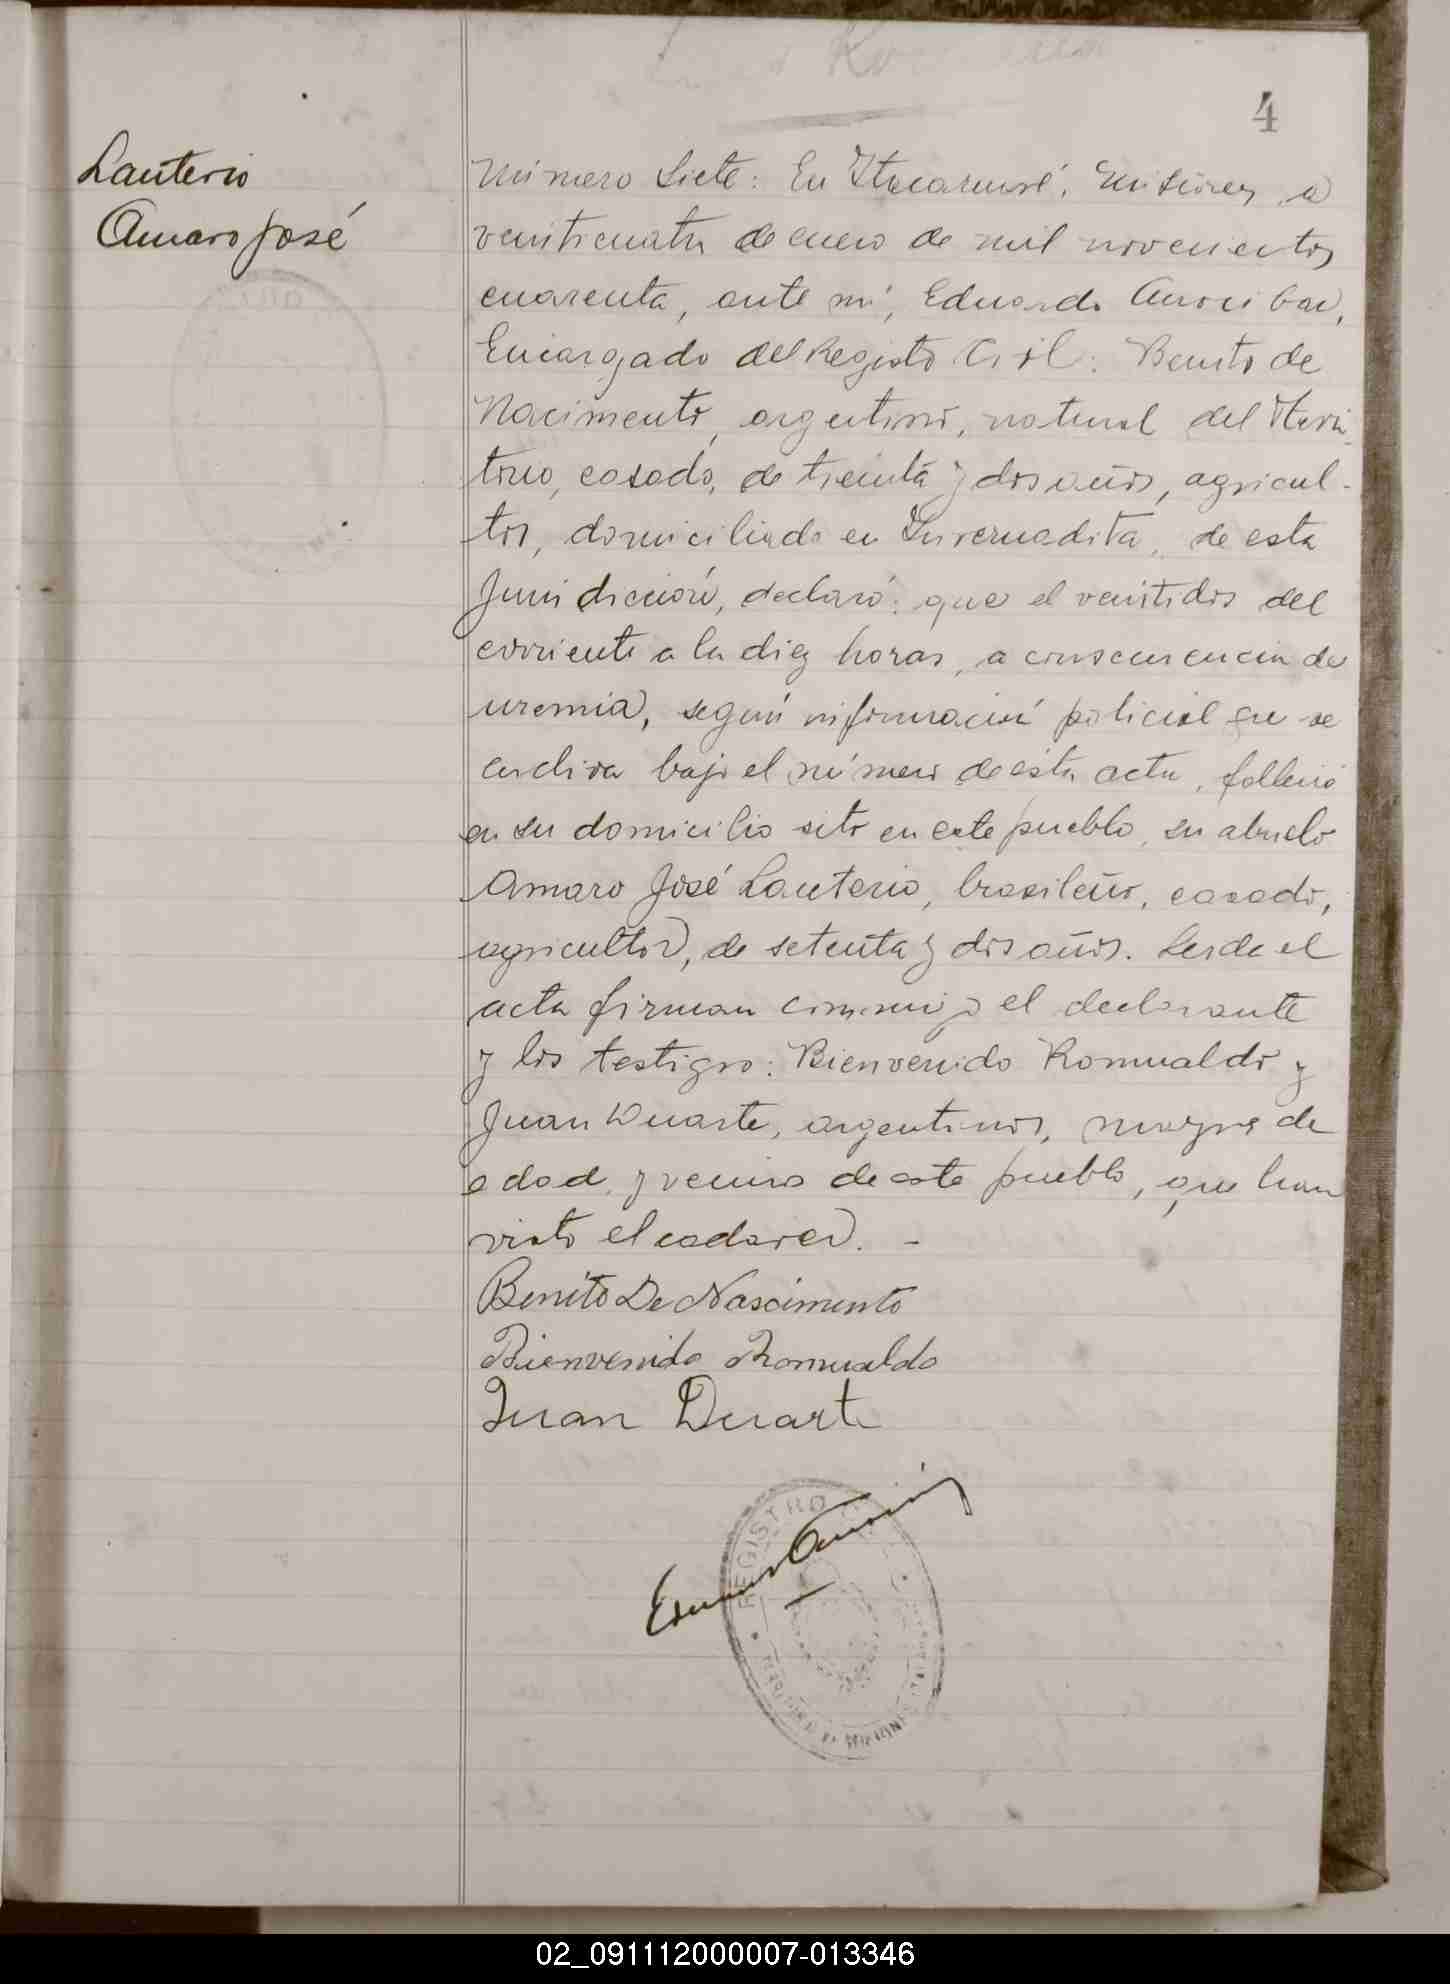 4
Lauterio
Amaro José
Número Siete: En Itacaruaré, Misiones, a
veinticuatro de enero de mil novecientos
cuarenta, ante mí, Eduardo
Encargado del Registro Civil: Benito de
Nacimento, argentino, natural del Terri-
torio, casado, de treinta y dos años, agricul-
tor, domiciliado en Invernadita, de esta
Jurisdicción, declaró: que el veintidos del
corriente a la diez horas, a consecuencia de
uremia, según información policial que se
archiva bajo el número de esta acta, falleció
en su domicilio sito en este pueblo, su abuelo
Amaro José Lauterio, brasileño, casado,
agricultor, de setenta y dos años. Leida el
acta firman conmigo el declarante
y los testigos: Bienvenido Romualdo y
Juan Duarte, argentinos, mayores de
edad, y vecinos de este pueblo, que han
visto el cadaver. -
Benito De Nascimento
Bienvenido Romualdo
Juan Duarte
REGISTRO CIVIL
TERRITORIO DE MISIONES
02_091112000007-013346